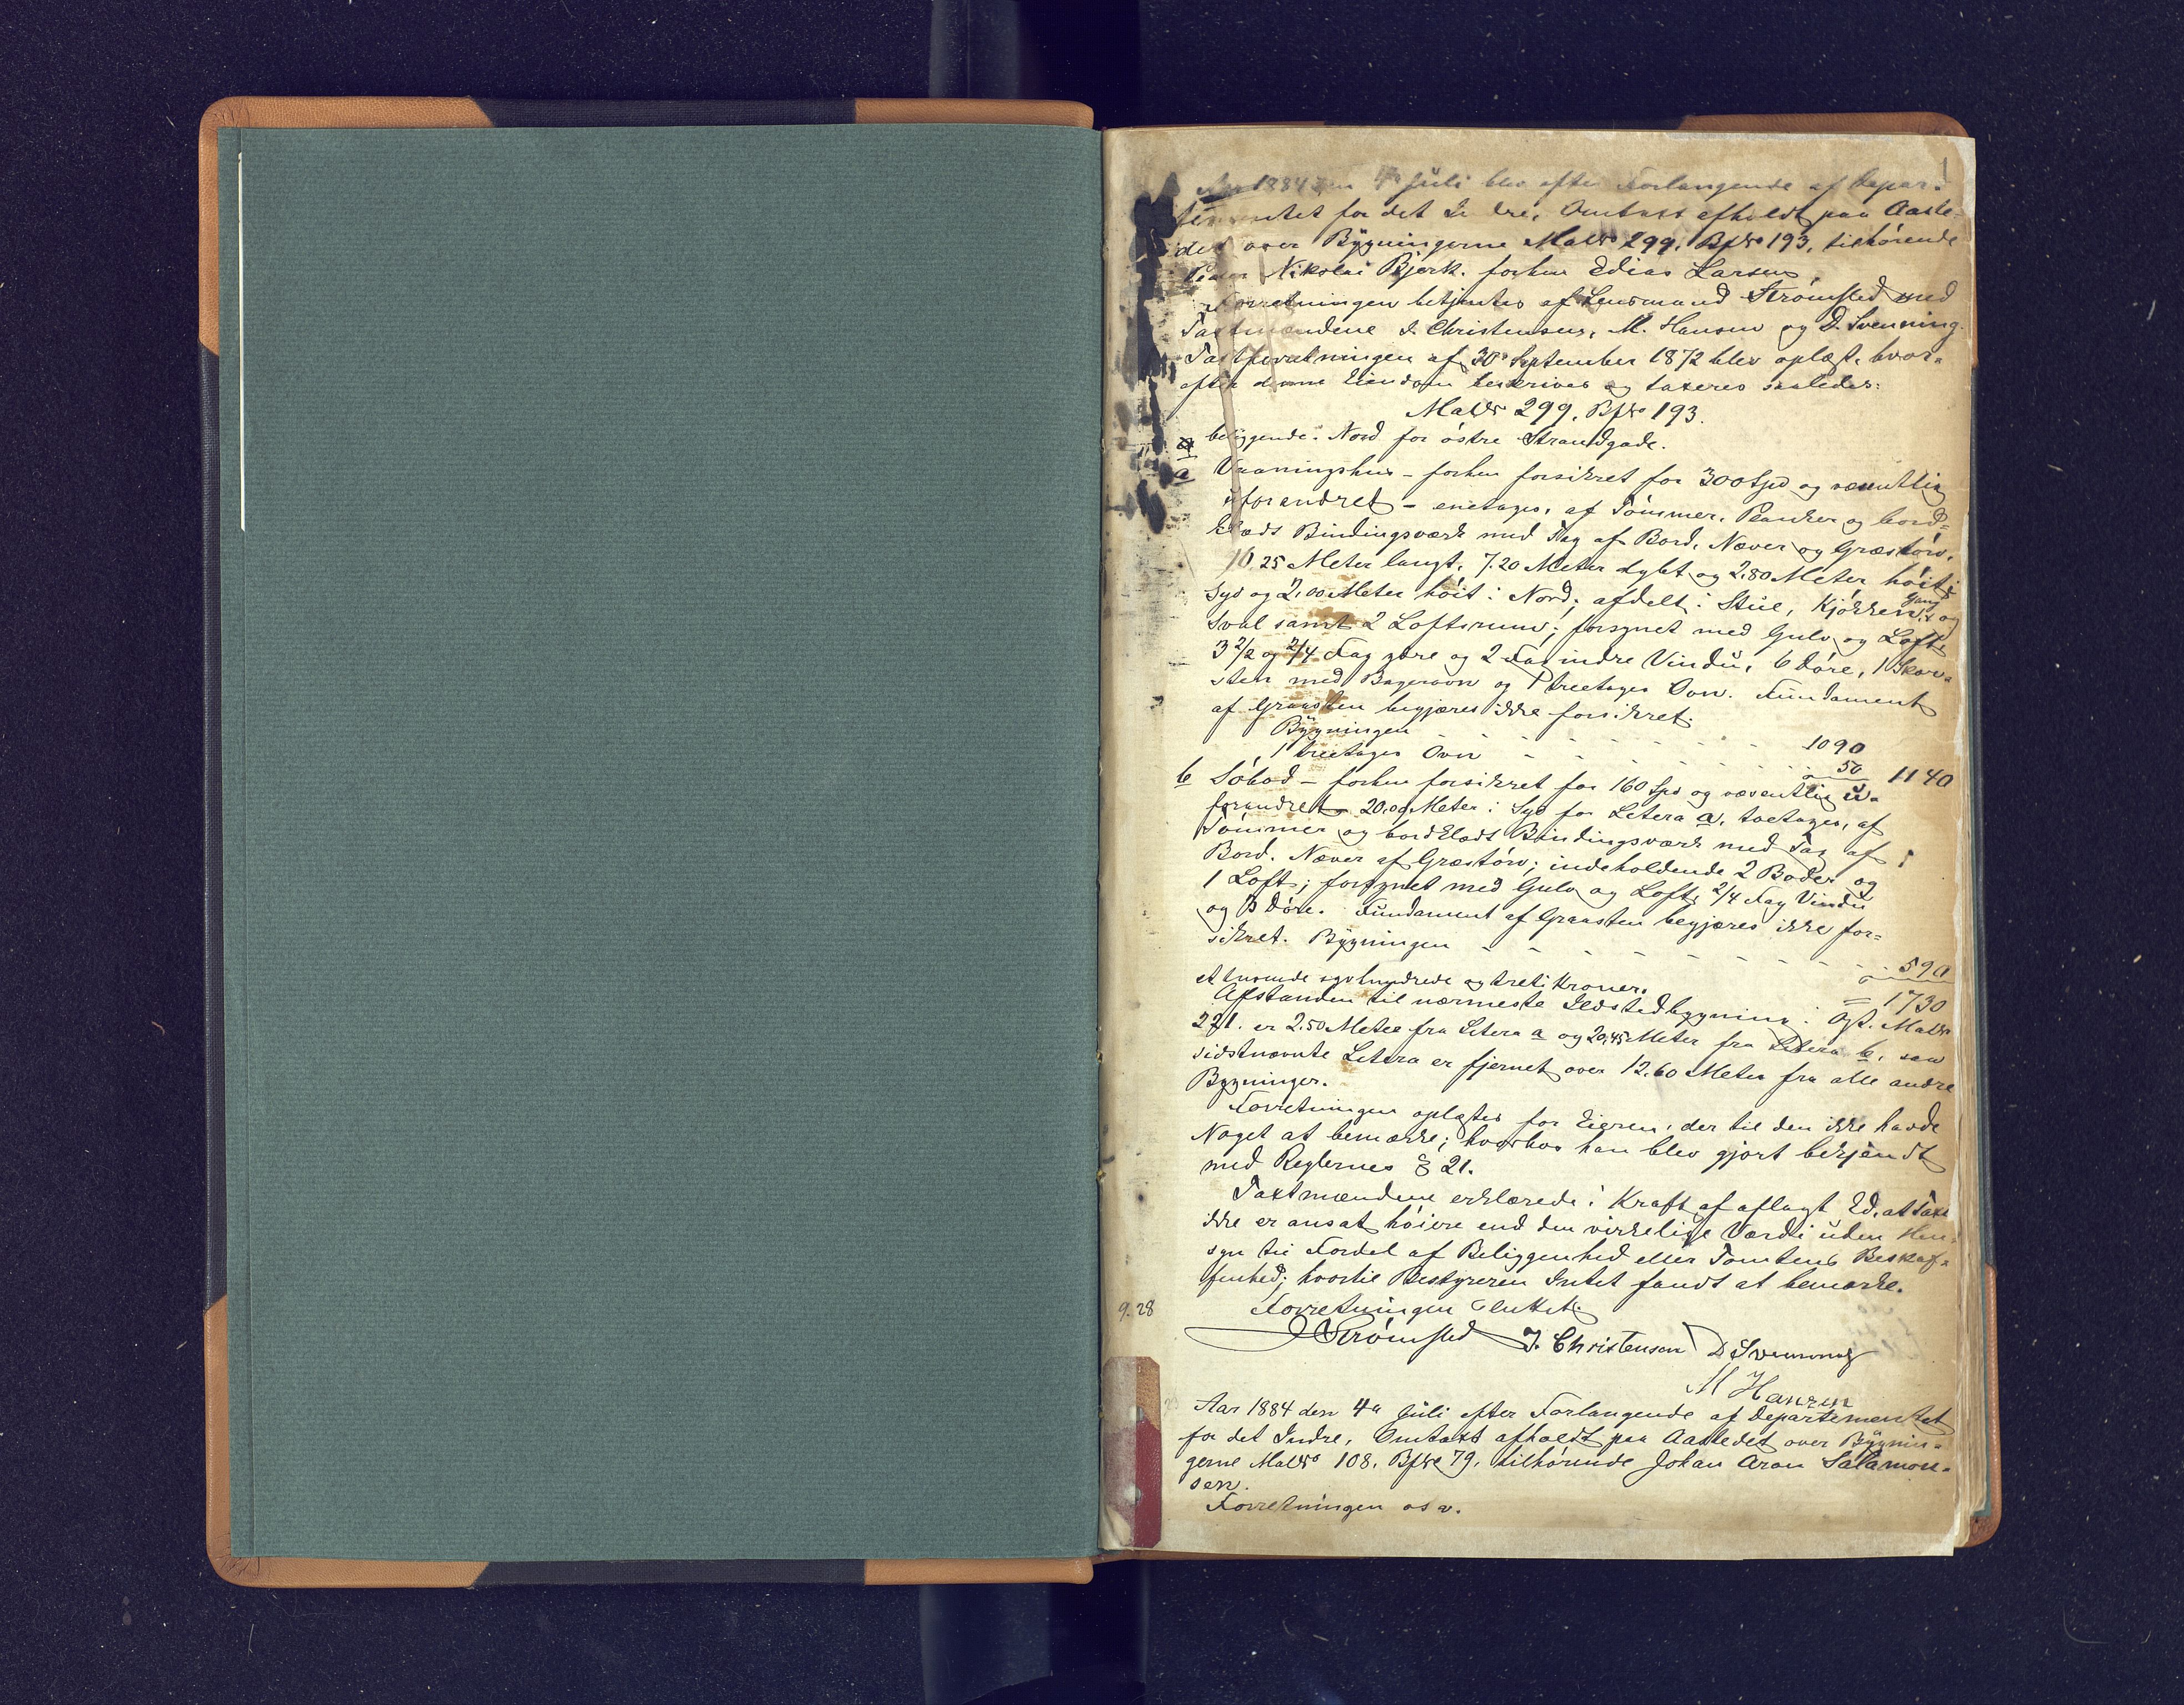 1
Aar 1884 den 4de Juli blev efter Forlangende af Depar-
tementet for det Indre, Omtaxt afholdt paa Aaste-
det over Bÿgningerne MatNo 299, BpNo 193, tilhørende
Nikolai Bjerk, forhen Edias Larsens.
Forretningen betjentes af Lensmand Strømsted med
Taxtmændene I. Christensen, M. Hansen og D. Svenning.
Taxtforretningen af 30 September 1872 blev oplæst, hvor-
efter denne Eiendom beskrives og taxeres saaledes:
MatNo 299, BpNo 193.
beliggende i Nord for østre Strandgade.
a Vaaningshus – forhen forsikret for 300 Spd og væsentlig
uforandret – enetages, af Tømmer, Planker og bord-
klædt Bindingsværk med Tag af Bord, Næver og Græstørv,
10.25 Meter langt, 7.20 Meter dybt og 2.80 Meter høit i
Syd og 2.00 Meter høit i Nord; afdelt i Stue, Kjøkken, Gang og
Sval samt 2 Loftsrum; forsynet med Gulv og Loft,
3 2/2 og 2/4 Fag ydre og 2 Fag indre Vindu, 6 Døre, 1 Skor-
sten med Bagerovn og 1 treetages Ovn. Fundament
af Graasten begjæres ikke forsikret.
Bÿgningen - - - - - - - 1090
1 treetages Ovn - - - - - - - 50 1140
b Søbod – forhen forsikret for 160 Spd og væsentlig u-
forandret – 20.00 Meter i Syd for Litera a, toetages, af
Tømmer og bordklædt Bindingsværk med Tag af
Bord, Næver af Græstørv; indeholdende 2 Boder og
1 Loft; forsynet med Gulv og Loft, 2/4 Fag Vindu
og 3 Døre. Fundament af Graasten begjæres ikke for-
sikret. Bÿgningen - - - - - - - 590
et tusinde syvhundrede og treti Kroner. = 1730
Afstanden til nærmeste Ildstedbygning i Øst. MatNo
221. er 2.50 Meter fra Litera a og 20.45 Meter fra Litera b, som
sidstnævnte Litera er fjernet over 12.60 Meter fra alle andre
Bygninger.
Forretningen oplæstes for Eieren, der til den ikke havde
Noget at bemærke; hvorhos han blev gjort bekjendt
med Reglernes § 21.
Taxtmændene erklærede i Kraft af aflagt Ed, at Taxt
ikke er ansat høiere end den virkelige Værdi uden Hen-
syn til Fordel af Beliggenhed eller Tomtens Beskaf-
fenhed; hvortil Bestyreren Intet fandt at bemærke.
9.28 Forretningen sluttet.
Strømsted I. Christensen D Svenning
M Hansen
Aar 1884 den 4de Juli efter Forlangende af Departementet
for det Indre, Omtaxt afholdt paa Aastedet over Bÿgnin-
gerne MatNo 108, BpNo 79, tilhørende Johan Aron Salamon-
sen.
Forretningen osv.